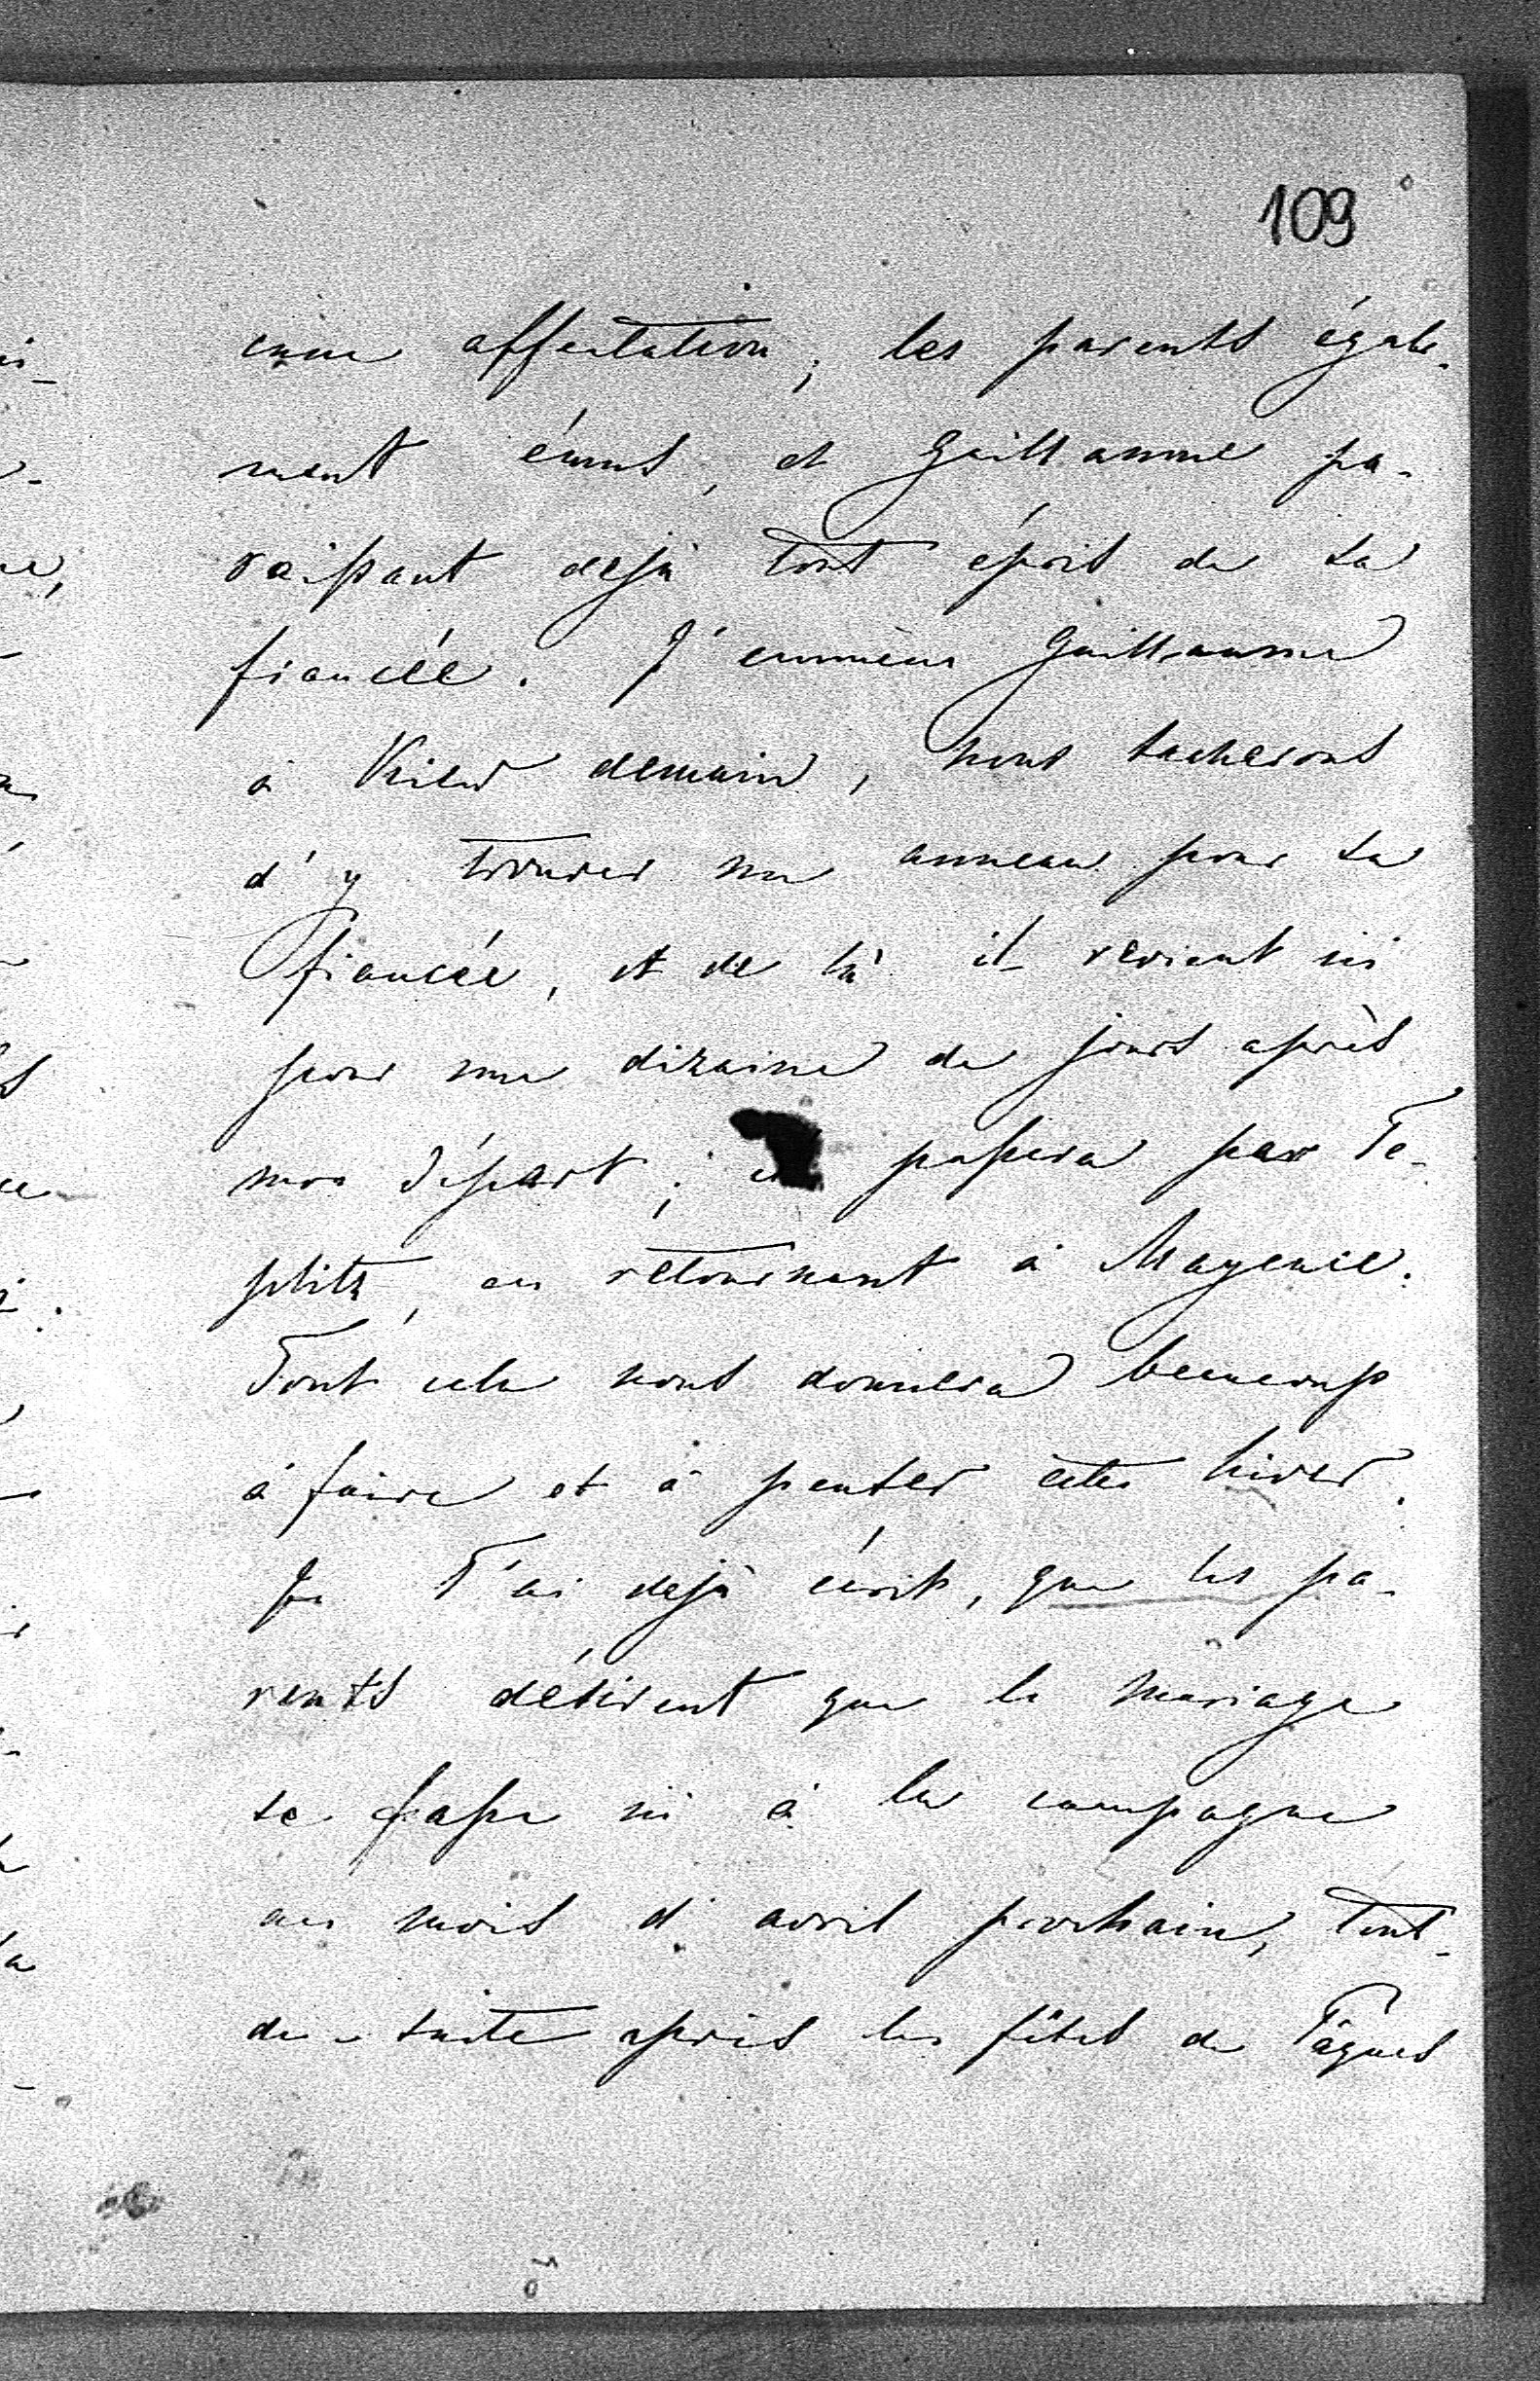 109
cune affectation; les parents égale-
ment émus, et Guillaume pa-
raissant dejà tout épris de sa
fiancée. J'emmène Guillaume
à Kiew demain, nous tacherons
d'y trouver un anneau pour sa
fiancée, et de là il revient ici
pour une dizaine de jours après
mon départ; il passera par Te-
plitz, en retournant à Mayence.
Tout cela nous donnera beaucoup
à faire et à penser cette hiver.
Je T'ai dejà écrit, que les pa-
rents désirent que le mariage
se passe ici à la campagne
au mois d'avril prochain, tout-
de-suite après les fêtes de Pâques